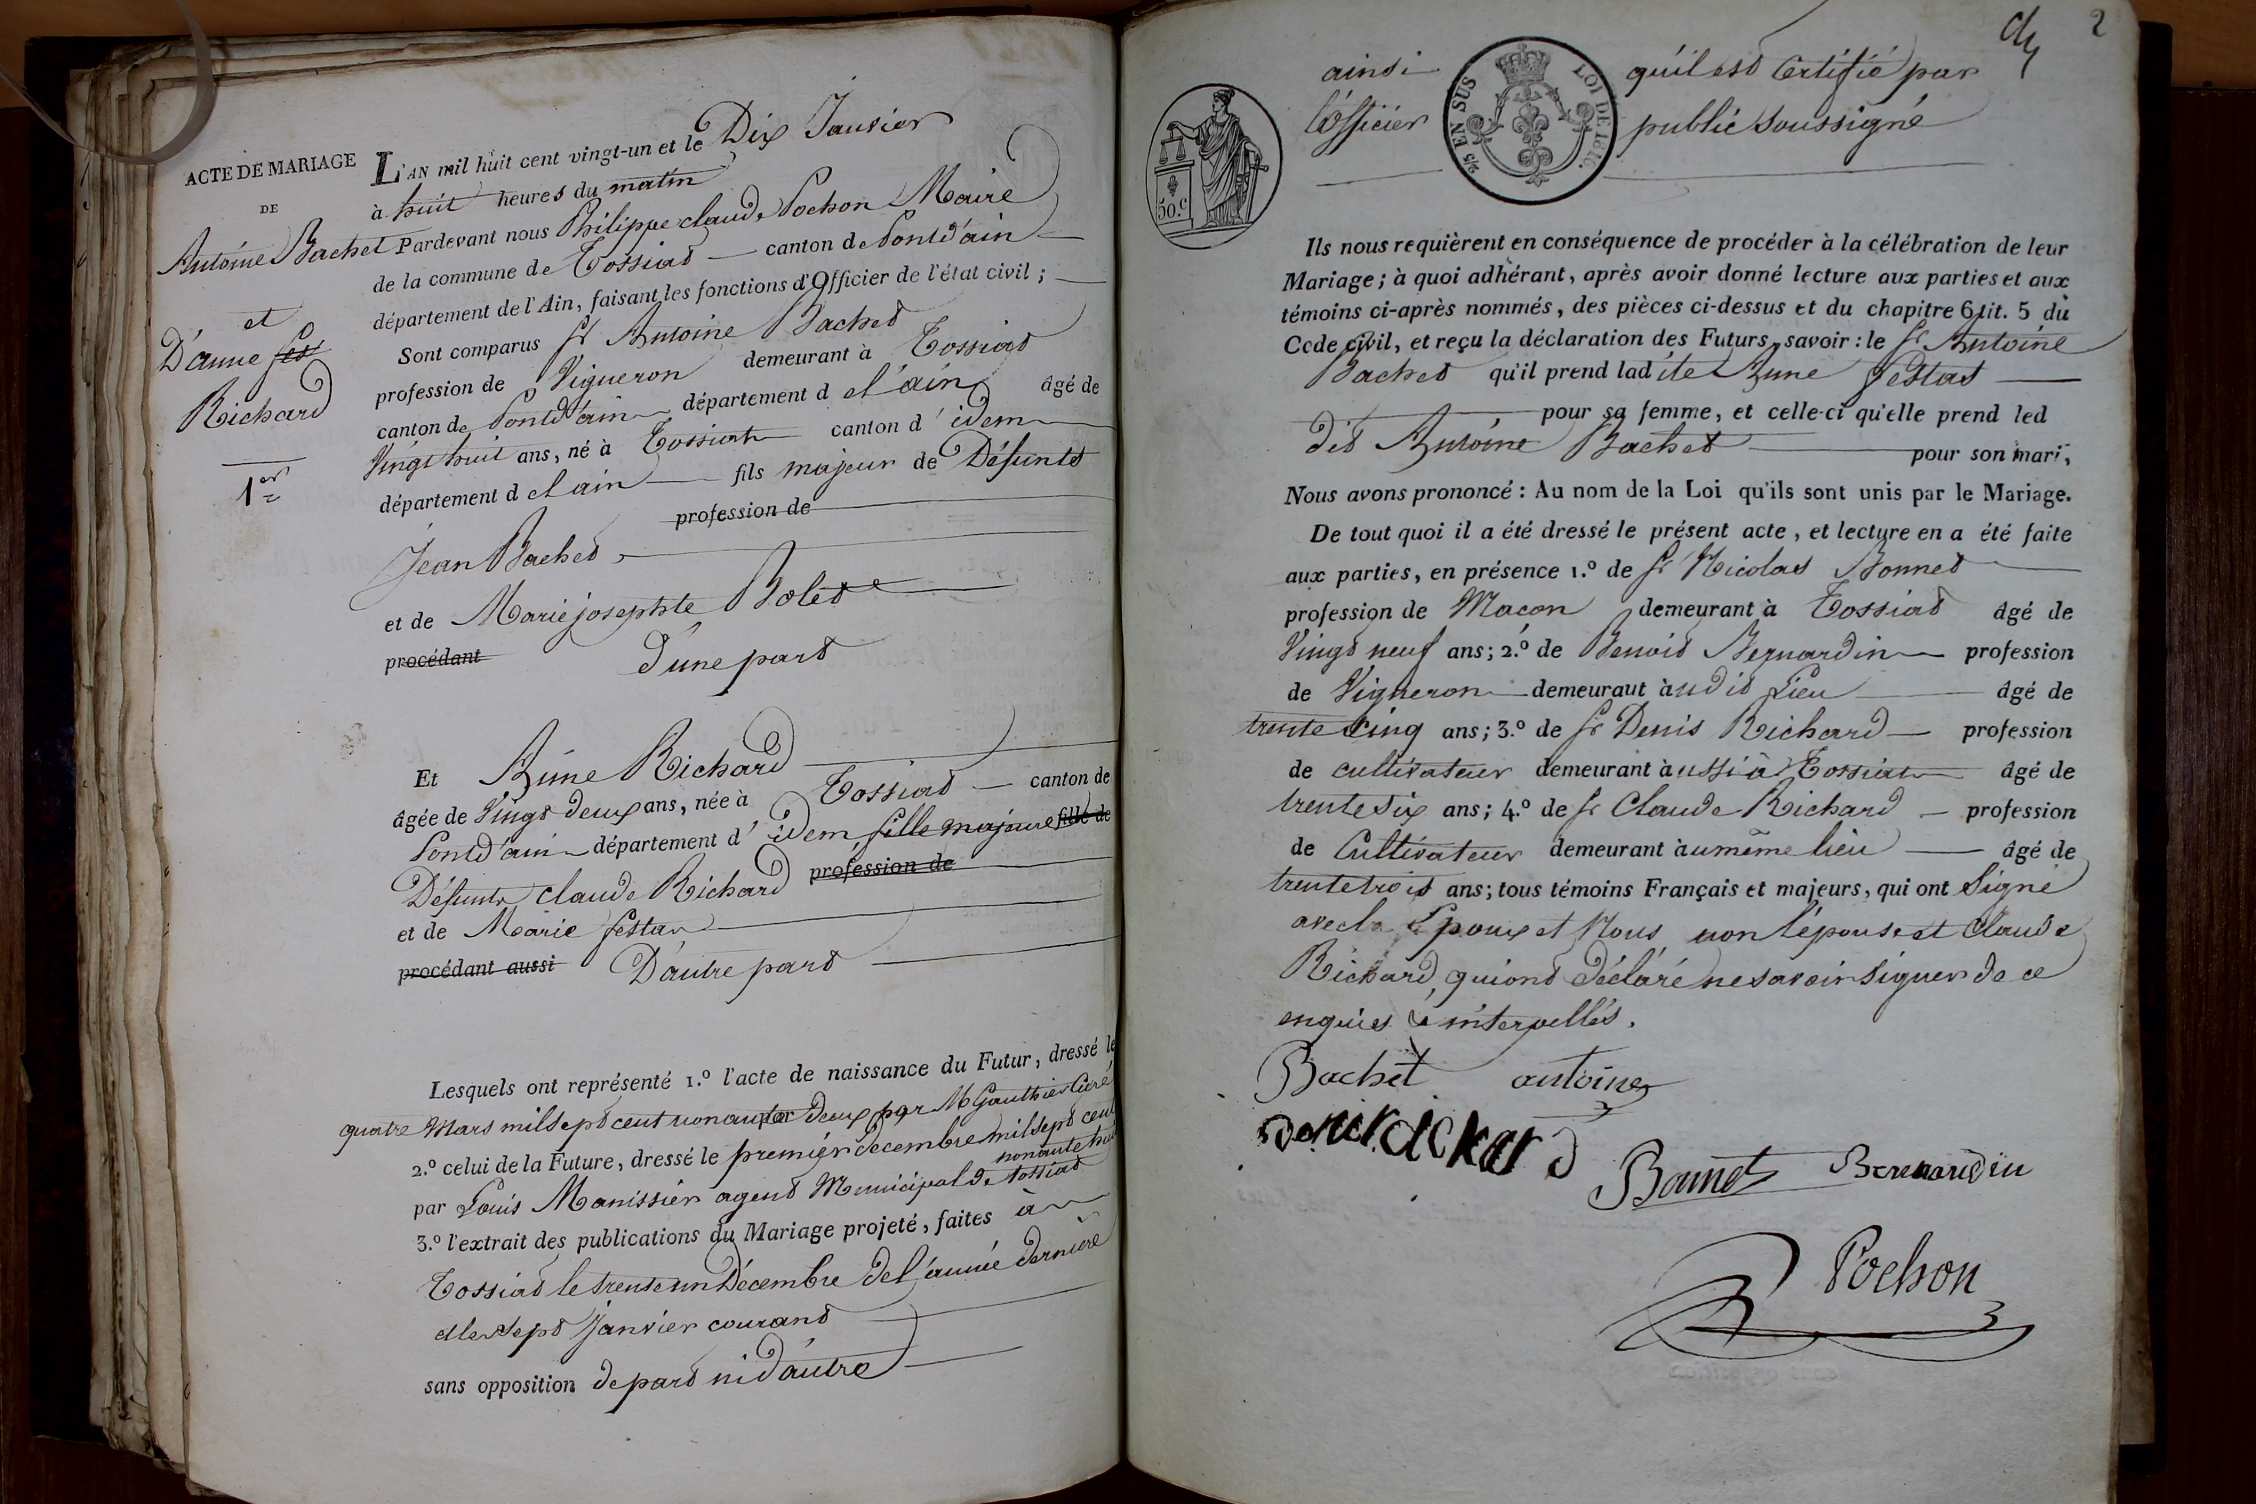 ACTE DE MARIAGE
DE
Antoine Bachet
et
D'anne fes
Richard
1er
L'AN mil huit cent vingt-un et le Dix Janvier
à huit heures du matin
Pardevant nous Philippe claude Pochon Maire
de la commune de Tossiat canton de Pontd'ain
département de l'Ain, faisant les fonctions d'Officier de l'état civil ;
Sont comparus Sr Antoine Bachet
profession de Vigneron demeurant à Tossiat
canton de Pontd'ain département d el'ain âgé de
Vingt huit ans, né à Tossiat canton d' idem
département d el ain fils majeur de Défunts
profession de
Jean Bachet
et de Marie josephte Bolet
procédant D'une part
Et Anne Richard
âgée de Vingt deux ans, née à Tossiat canton de
Pontd'ain département d' idem, fille majeure fille de
Défunt claude Richard profession de
et de Marie festas
procédant aussi D'autre part
Lesquels ont représenté 1.º l'acte de naissance du Futur, dressé le
quatre Mars mil sept cent nonante par Deux par M Gauthier Curé
2.º celui de la Future, dressé le premier decembre mil sept cent
nonante huit
par Louis Manissier agent Municipal de Tossiat
3.º l'extrait des publications du Mariage projeté, faites à
Tossiat le trente un Décembre de l'année derniere
et le sept Janvier courant
sans opposition de part ni d'autre
2
ainsi qu'il est Certifié par
l'officier public soussigné
2/5 EN SUS
LOI DE 1816.
50.c
Ils nous requièrent en conséquence de procéder à la célébration de leur
Mariage ; à quoi adhérant, après avoir donné lecture aux parties et aux
témoins ci-après nommés, des pièces ci-dessus et du chapitre 6 tit. 5 du
Code civil, et reçu la déclaration des Futurs, savoir : le Sr Antoine
Bachet qu'il prend lad ite Anne festas
pour sa femme, et celle-ci qu'elle prend led
dit Antoine Bachet pour son mari,
Nous avons prononcé : Au nom de la Loi qu'ils sont unis par le Mariage.
De tout quoi il a été dressé le présent acte, et lecture en a été faite
aux parties, en présence 1.º de Sr Nicolas Bonnet
profession de Macon demeurant à Tossiat âgé de
Vingt neuf ans ; 2.º de Benoit Bernardin profession
de Vigneron demeurant à udit Lieu âgé de
trente Cinq ans ; 3.º de Sr Denis Richard profession
de cultivateur demeurant à ussi à Tossiat âgé de
trente Six ans ; 4.º de Sr Claude Richard profession
de Cultivateur demeurant à u même lieu âgé de
trente trois ans ; tous témoins Français et majeurs, qui ont Signé
avec l'Epoux et Nous, non l'épouse et Claude
Richard, qui ont Déclaré ne savoir signer de ce
enquis & interpellés.
Bachet antoine
Bonnet Bernardin
Pochon